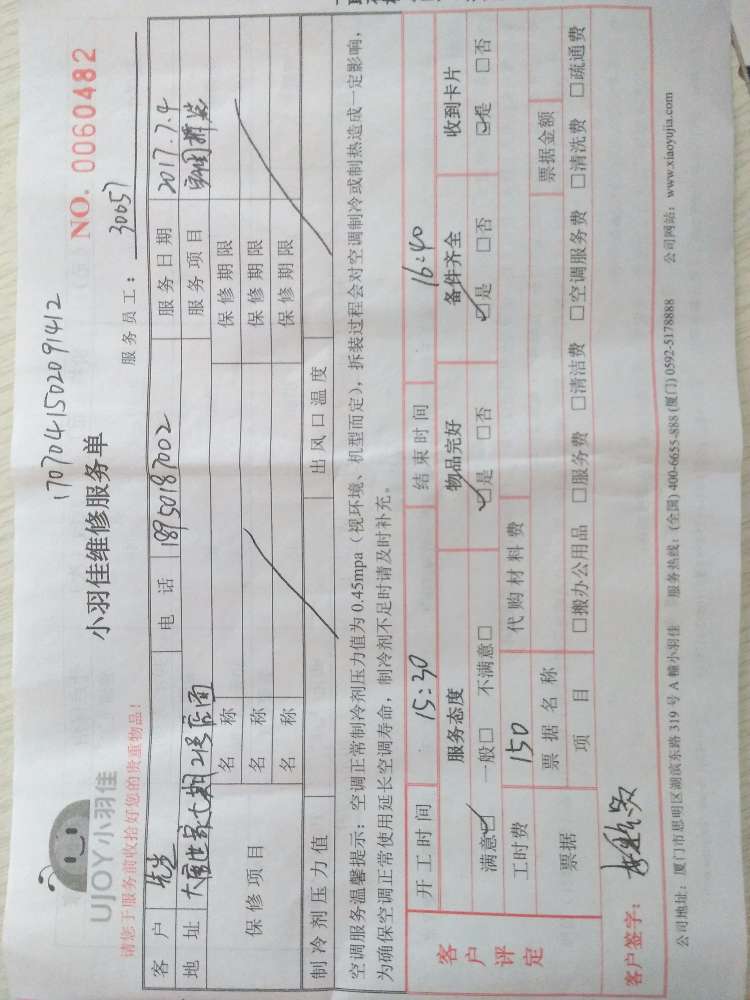 1707041502091412
UJOY小羽佳
小羽佳维修服务单
NO. 0060482
请您于服务前收拾好您的贵重物品!
服务员工: 30057
客户 先生 电话 18950187002 服务日期 2017.7.4
地址 大唐世家七期21号店面 服务项目
保修项目
名称 保修期限
名称 保修期限
名称 保修期限
制冷剂压力值 出风口温度
空调服务温馨提示:空调正常制冷剂压力值为0.45mpa(视环境、机型而定),拆装过程会对空调制冷或制热造成一定影响,
为确保空调正常使用延长空调寿命,制冷剂不足时请及时补充。
客户评定
开工时间 15:30 结束时间 16:40
服务态度 物品完好 备件齐全 收到卡片
满意☑ 一般□ 不满意□ ☑是 □否 ☑是 □否 ☑是 □否
工时费 150 代购材料费
票据 票据名称 票据金额
项目 □搬办公用品 □服务费 □清洁费 □空调服务费 □清洗费 □疏通费
客户签字:
公司地址:厦门市思明区湖滨东路319号A幢小羽佳 服务热线:(全国)400-6655-888(厦门)0592-5178888 公司网站:www.xiaoyujia.com